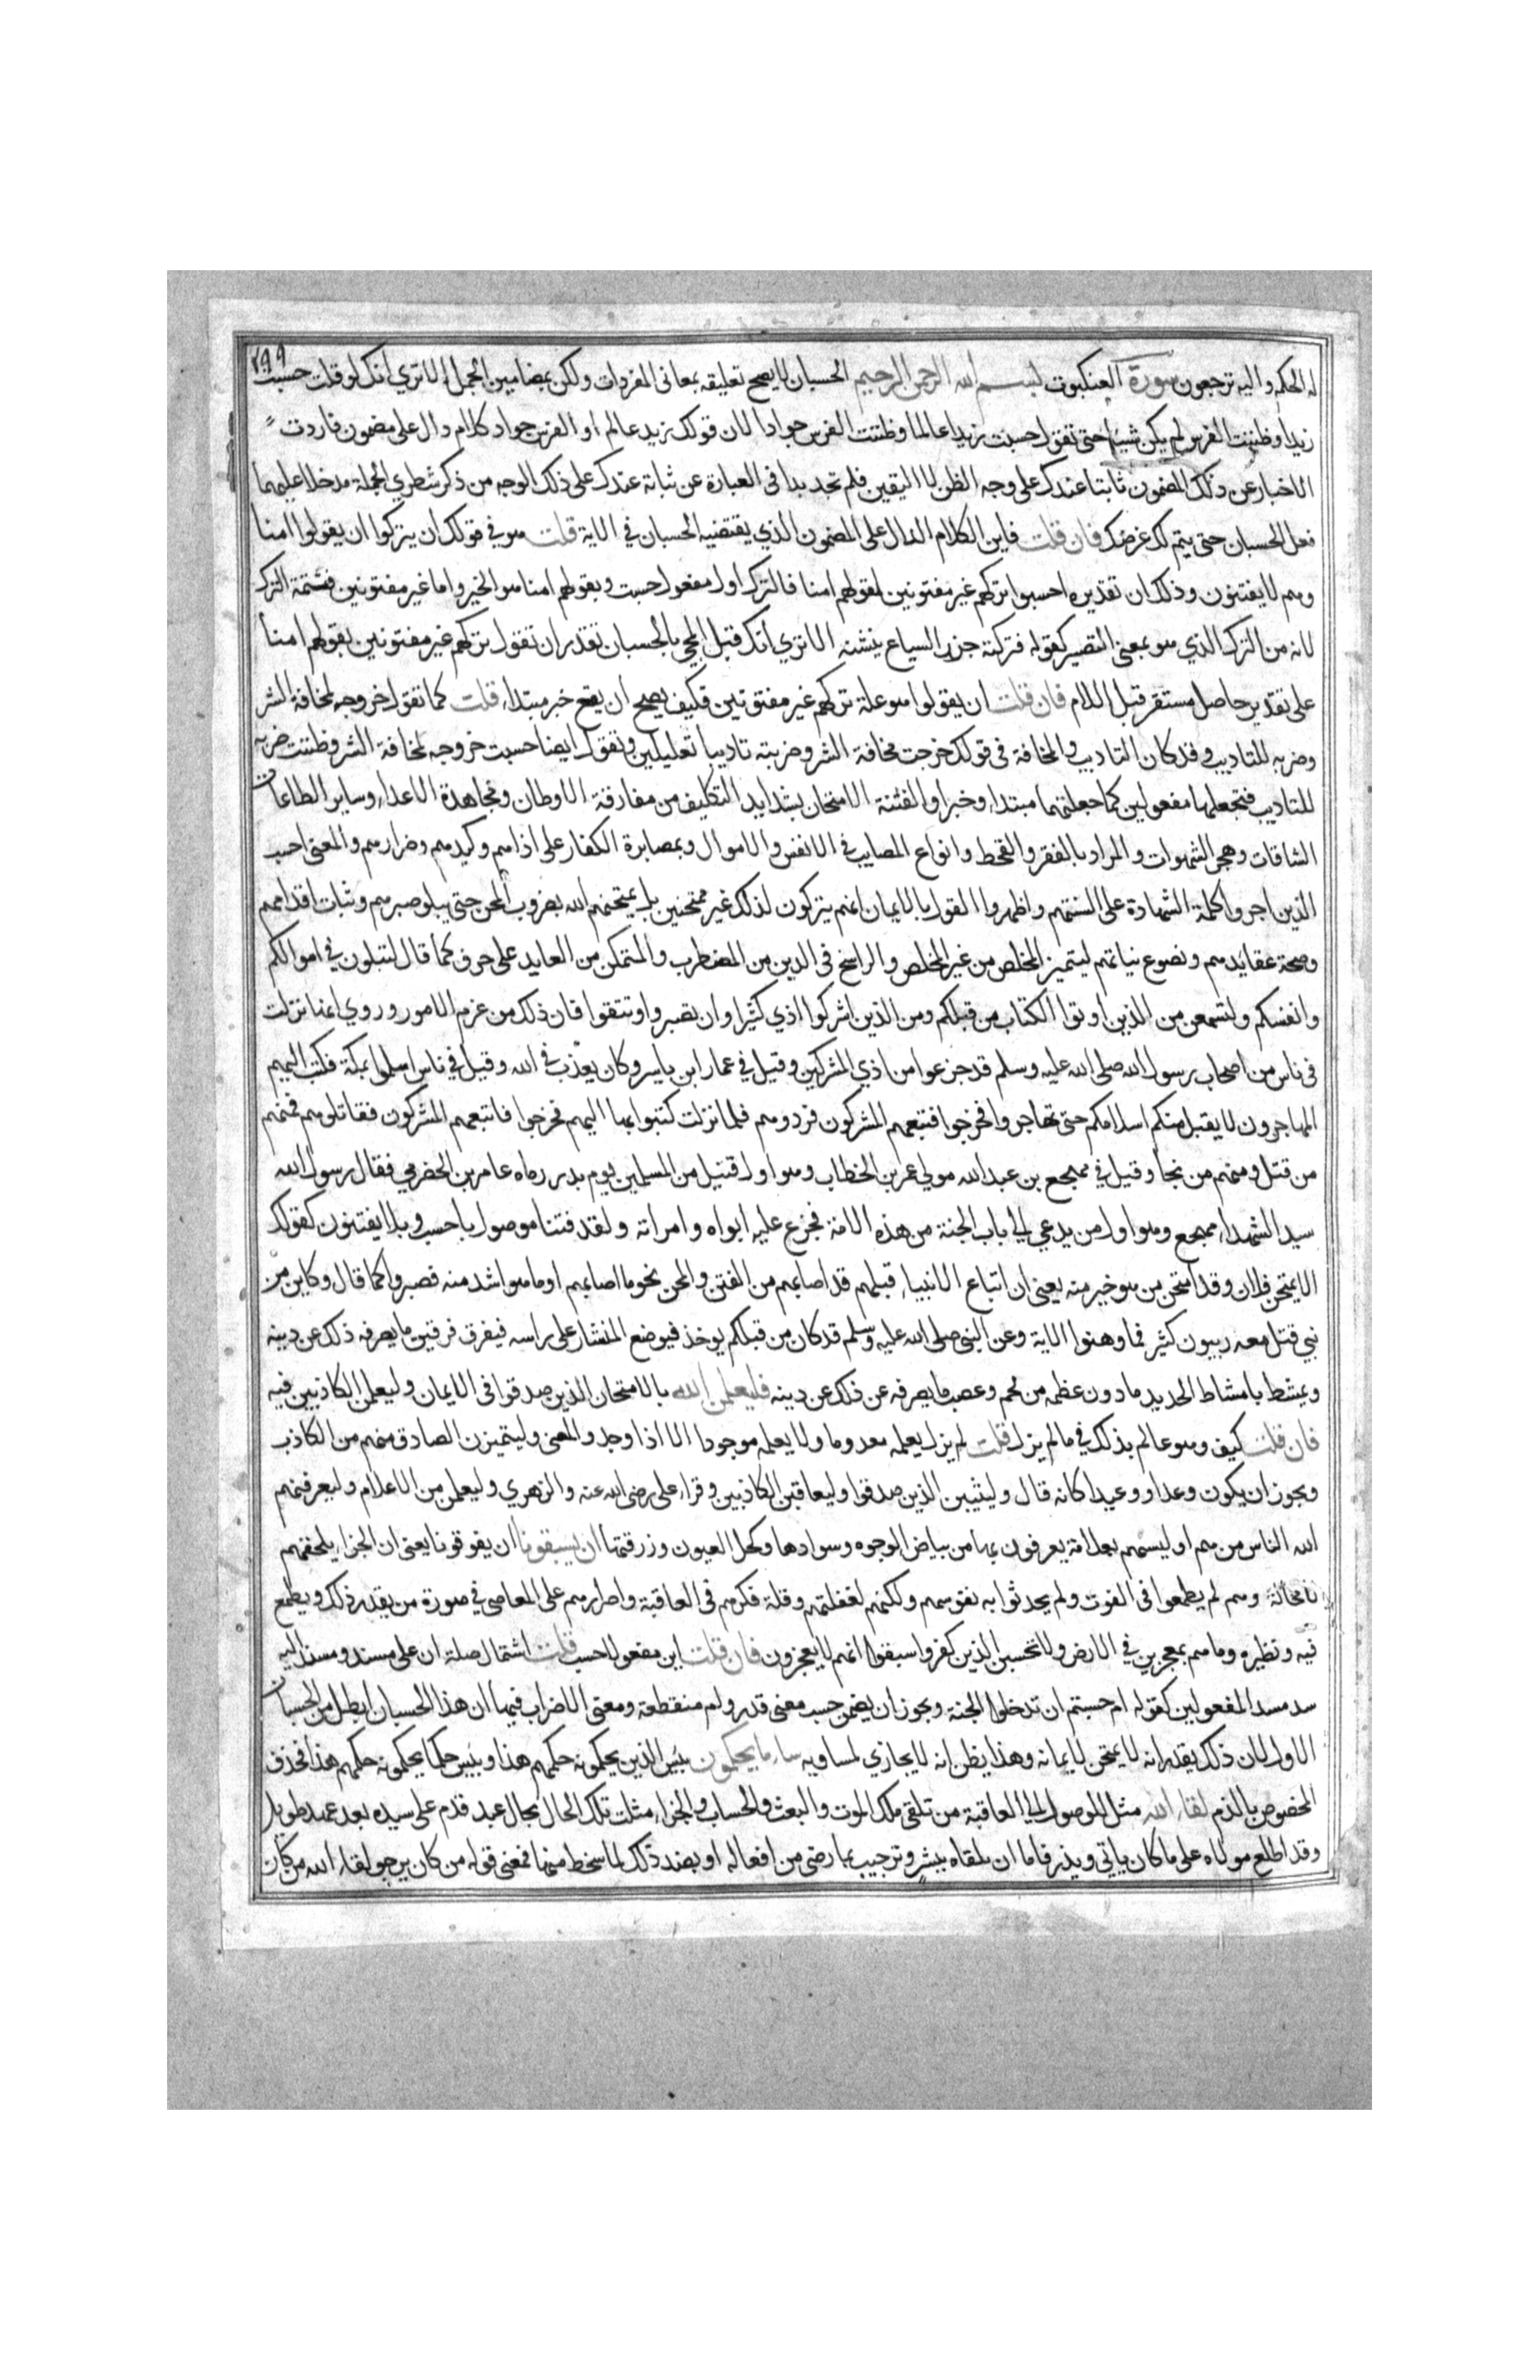 ٢٩٩
له الحكم واليه ترجعون سورة العنكبوت بسم الله الرحمن الرحيم الحسبان لا يصح تعليقه بمعاني المفردات ولكن بمضامين الجمل الا تري انك لو قلت حسبت
زيدا وظننت الفرس لم يكن شيئا حتي تقول حسبت زيدا عالما وظننت الفرس جوادا لان قولك زيد عالم او الفرس جواد كلام دال على مضمون فاردت
الاخبار عن ذلك المضمون ثابتا عندك على وجه الظن لا اليقين فلم تجد بدا في العبارة عن ثباته عندك على ذلك الوجه من ذكر شطري الجملة مدخلا عليهما
فعل الحسبان حتى يتم لك غرضك فان قلت فاين الكلام الدال على المضمون الذي يقتضيه الحسبان في الاية قلت هو في قولك ان يتركوا ان يقولوا امنا
وهم لا يفتنون وذلك ان تقديره احسبوا تركهم غير مفتونين لقولهم امنا فالترك اول مفعول حسبت وبقولهم امنا هو الخبر واما غير مفتونين فتتمة الترك
لانه من الترك الذي هو بمعنى التصيير كقوله فتركته جزر السباع ينشنه الا تري انك قبل المجي بالحسبان تقدر ان تقول تركهم غير مفتونين بقولهم امنا
على تقدير حاصل مستقر قبل اللام فان قلت ان يقولوا هو علة تركهم غير مفتونين فكيف يصح ان يقع خبر مبتداء قلت كما تقول خروجه لمخافة الشر
وضربه للتاديب وقد كان التاديب والمخافة في قولك خرجت مخافة الشر وضربته تاديبا تعليلين وتقول ايضا حسبت خروجه لمخافة الشر وظننت ضربه
للتاديب فتجعلها مفعولين كما جعلتهما مبتداء وخبرا والفتنة الامتحان بشدايد التكليف من مفارقة الاوطان ومجاهدة الاعداء وساير الطاعات
الشاقات وهجر الشهوات والمراد بالفقر والقحط وانواع المصايب في الانفس والاموال وبمصابرة الكفار على اذاهم وكيدهم وضرارهم والمعنى احسب
الذين اجروا كلمة الشهادة على السنتهم واظهروا القول بالايمان انهم يتركون لذلك غير ممتحنين بل يمتحنهم الله بضروب المحن حتى يبلو صبرهم وثبات اقدامهم
وصحة عقايدهم ونصوع نياتهم ليتميز المخلص من غير المخلص والراسخ في الدين من المضطرب والمتمكن من العابد على حرف كما قال لتبلون في اموالكم
وانفسكم ولتسمعن من الذين اوتوا الكتاب من قبلكم ومن الذين اشركوا اذي كثيرا وان تصبروا وتتقوا فان ذلك من عزم الامور وروي انها نزلت
في ناس من اصحاب رسول الله صلى الله عليه وسلم قد جزعوا من اذي المشركين وقيل في عمار ابن ياسر وكان يعذب في الله وقيل في ناس اسلموا بمكة فكتب اليهم
المهاجرون لا يقبل منكم اسلامكم حتى تهاجروا فخرجوا فتبعهم المشركون فردوهم فلما نزلت كتبوا بها اليهم فخرجوا فاتبعهم المشركون فقاتلوهم فمنهم
من قتل ومنهم من نجا وقيل في مهجع بن عبد الله مولي عمر بن الخطاب وهو اول قتيل من المسلمين يوم بدر رماه عامر بن الحضرمي فقال رسول الله
سيد الشهداء مهجع وهو اول من يدعي الي باب الجنة من هذه الامة فجزع عليه ابواه وامراته ولقد فتنا موصول باحسب او بلا يفتنون كقولك
الا يمتحن فلان وقد امتحن من هو خير منه يعني ان اتباع الانبياء قبلهم قد اصابهم من الفتن والمحن نحو ما اصابهم او ما هو اشد منه فصبروا كما قال وكاين من
نبي قتل معه ربيون كثير فما وهنوا الاية وعن النبي صلى الله عليه وسلم قد كان من قبلكم يوخذ فيوضع المنشار على راسه فيفرق فرقتين ما يصرفه ذلك عن دينه
ويمشط بامشاط الحديد ما دون عظمه من لحم وعصب ما يصرفه عن ذلك عن دينه فليعلمن الله بالامتحان الذين صدقوا في الايمان وليعلمن الكاذبين فيه
فان قلت كيف وهو عالم بذلك في ما لم يزل قلت لم يزل يعلمه معدوما ولا يعلمه موجودا الا اذا وجد والمعنى وليتميزن الصادق منهم من الكاذب
ويجوز ان يكون وعدا ووعيدا كانه قال وليثيبن الذين صدقوا وليعاقبن الكاذبين وقراء على رضى الله عنه والزهري وليعلمن من الاعلام وليعرفنهم
الله الناس من هم او ليسمهم بعلامة يعرفون بها من بياض الوجوه وسوادها وكحل العيون وزرقتها ان يسبقونا ان يفوقونا يعني ان الجزاء يلحقهم
لا محالة وهم لم يطمعوا في الفوت ولم يحدثوا به نفوسهم ولكنهم لغفلتهم وقلة فكرهم في العاقبة واصرارهم على المعاصي في صورة من يقدر ذلك ويطمع
فيه ونظيره وما هم بمعجزين في الارض ولا تحسبن الذين كفروا سبقوا انهم لا يعجزون فان قلت اين مفعولا حسب قلت اشتمال صلة ان على مسند ومسند اليه
سد مسد المفعولين كقوله ام حسبتم ان تدخلوا الجنة ويجوز ان يضمن حسب معنى قدر وام منقطعة ومعنى الاضراب فيها ان هذا الحسبان ابطل من الحسبان
الاول لان ذلك يقدر انه لا يمتحن لايمانه وهذا يظن انه لا يجازي لمساويه ساء ما يحكمون بئس الذين يحكمونه حكمهم هذا وبئس حكما يحكمونه حكمهم هذا فحذف
المخصوص بالذم لقاء الله مثل للوصول الي العاقبة من تلقى ملك الموت والبعث والحساب والجزاء مثلت تلك الحال بحال عبد قدم على سيده بعد عهد طويل
وقد اطلع مولاه على ما كان ياتي ويذر فاما ان يلقاه ببشر وترحيب لما رضى من افعاله او بضد ذلك لما سخط منها فمعنى قوله من كان يرجو لقاء الله من كان